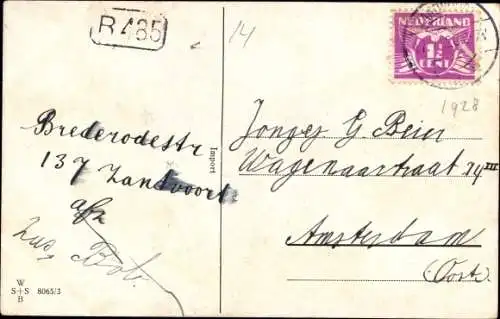 R 485
14
NEDERLAND
1½
CENT
1928
Brederodestr
137 Zantvoort
afz
Bob.
Import
Jonges G Beier
Wagenaarstraat 74 III
Amsterdam
(Oost)
W
S+S 8065/3
B